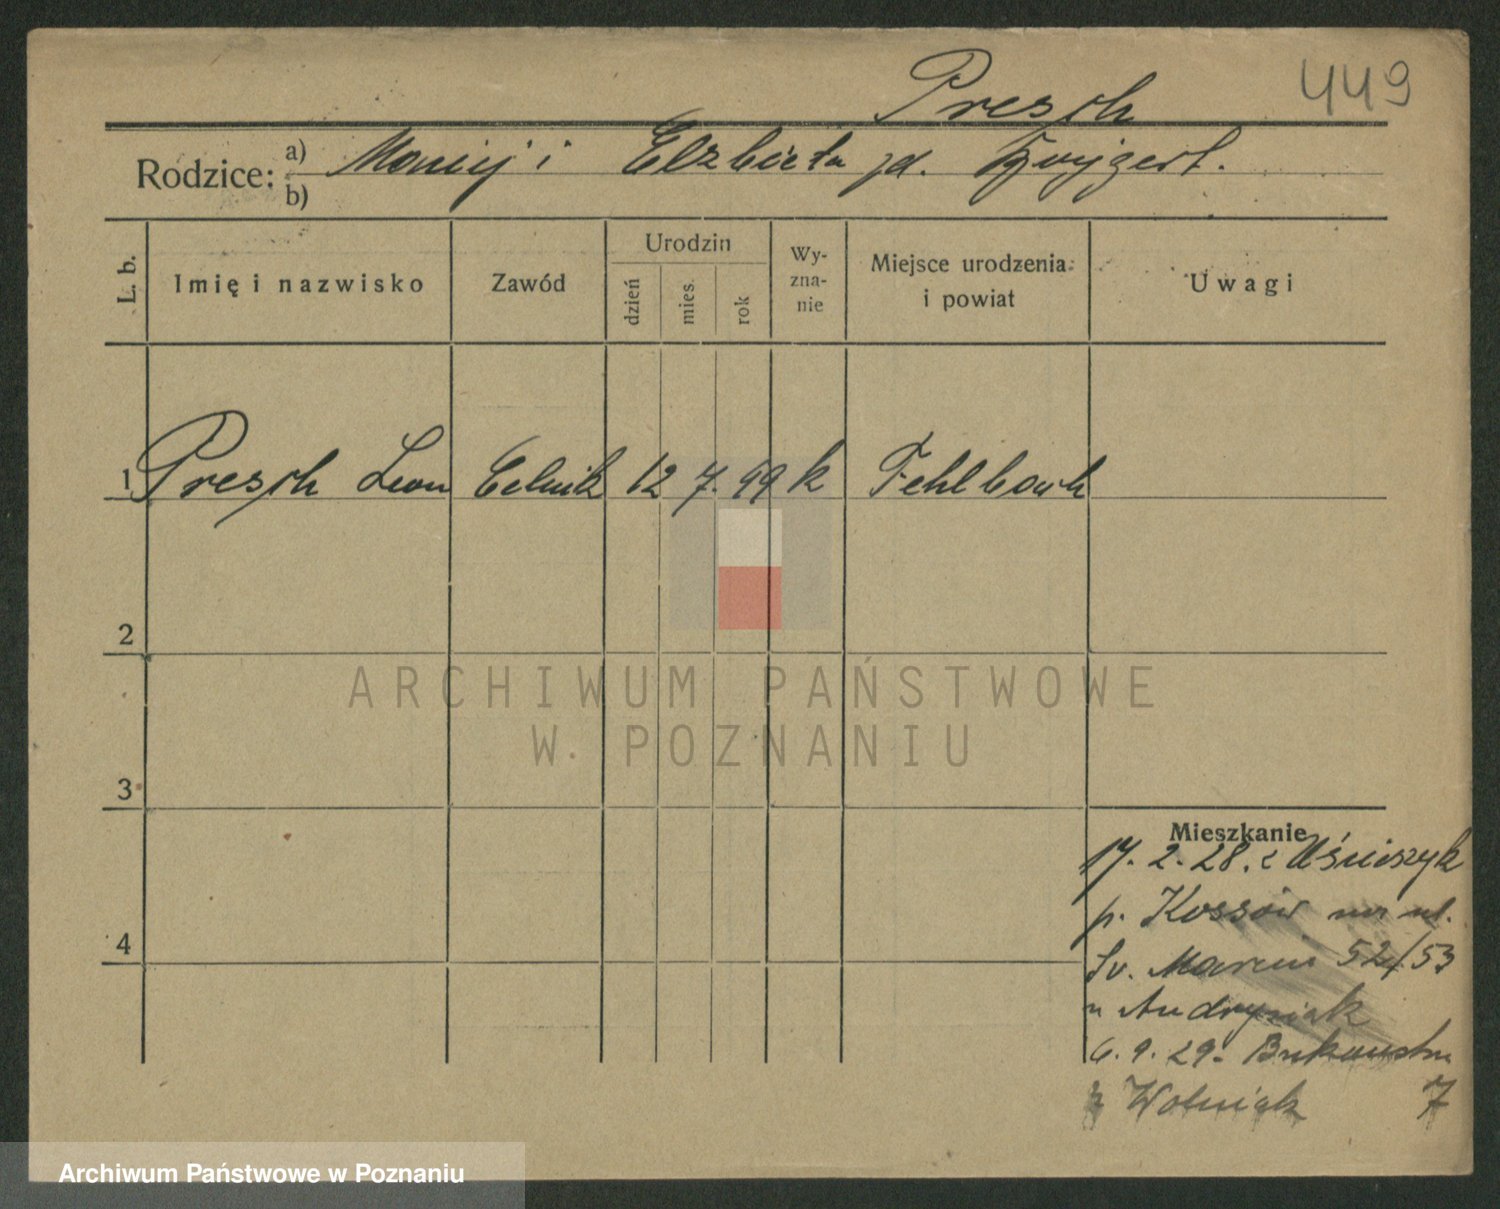 Presch 449
Rodzice: a) Maciej i Elzbieta zd.
b)
L. b. Imię i nazwisko Zawód Urodzin dzień mies. rok Wy-zna-nie Miejsce urodzenia i powiat Uwagi
1 Presch Leon Celnik 12 7. 99 k Fehlbach
2
3
4
Mieszkanie
17. 2. 28. z
p. Kossów na ul.
Św. Marcin 52/53
u Andrysiak
6. 9. 29. Bukowska
Wolniak 7
ARCHIWUM PAŃSTWOWE
W POZNANIU
Archiwum Państwowe w Poznaniu